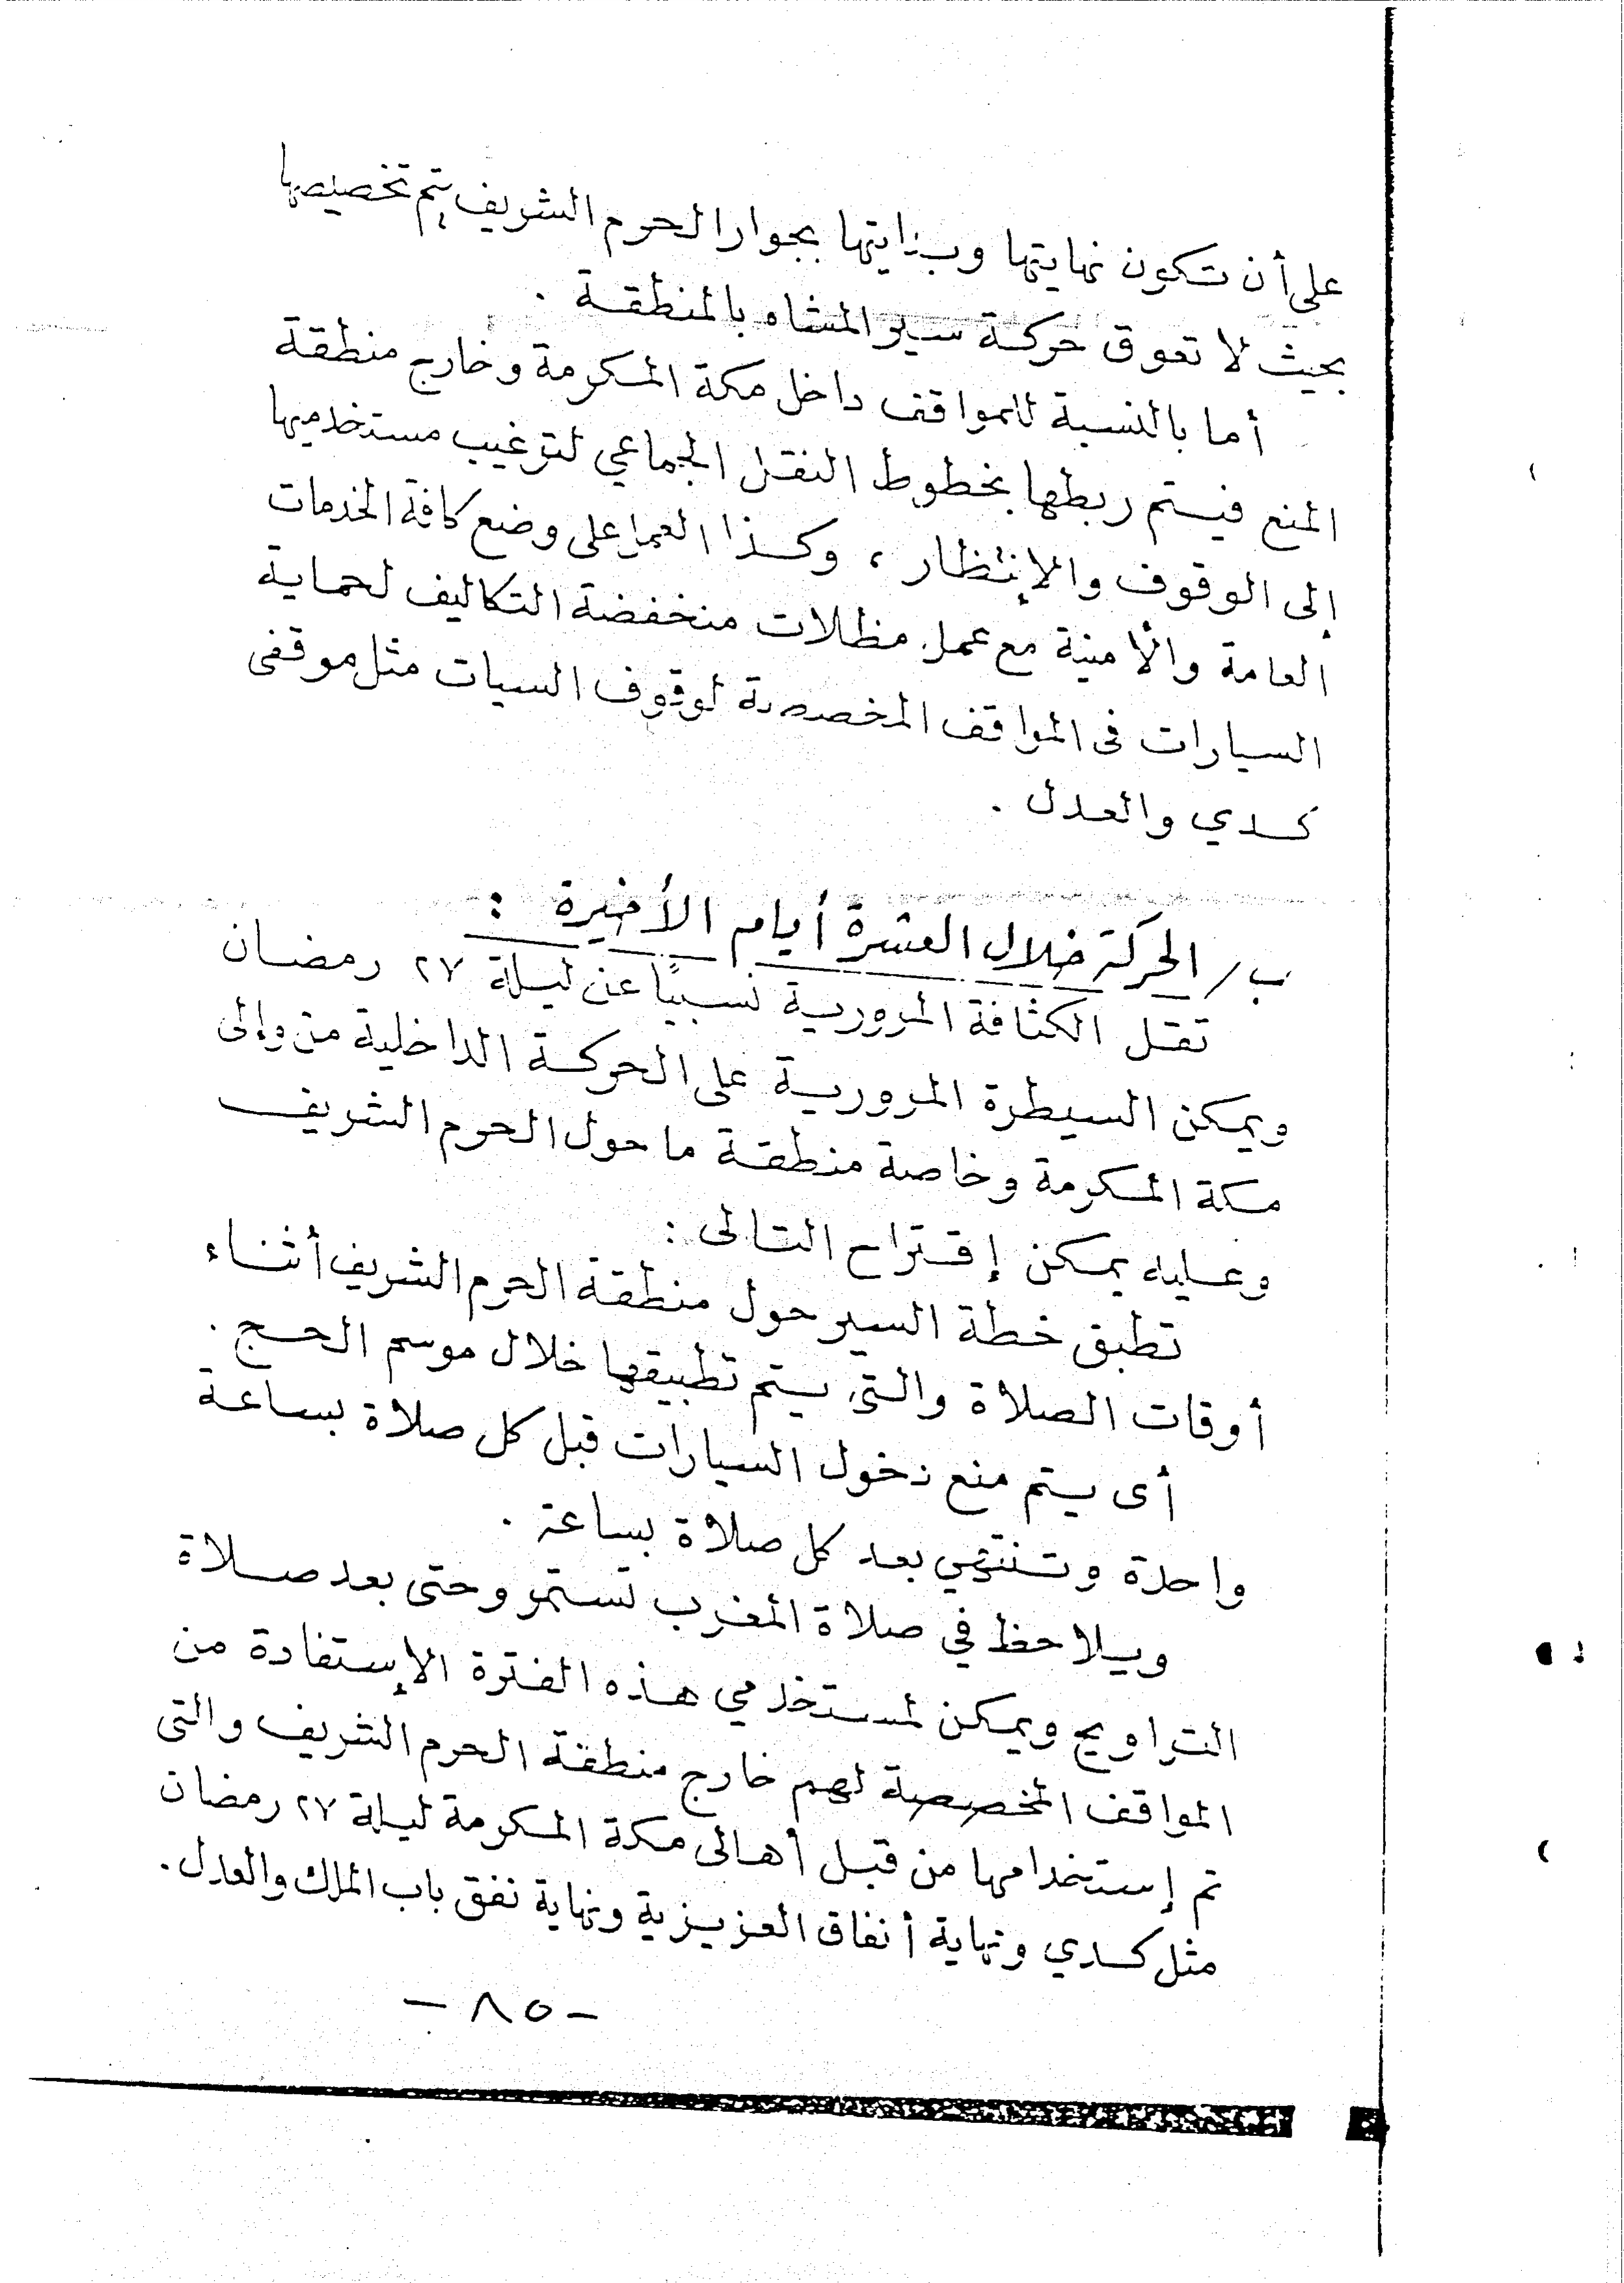 على أن تكون نهايتها وبدايتها بجوار الحرم الشريف يتم تخصيصها
بحيث لا تعوق حركة سير المشاه بالمنطقة .
أما بالنسبة للمواقف داخل مكة المكرمة وخارج منطقة
المنع فيستم ربطها بخطوط النقل الجماعي لترغيب مستخدميها
إلى الوقوف والإنتظار ، وكذا العمل على وضع كافة الخدمات
العامة والأمنية مع عمل مظلات منخفضة التكاليف لحماية
السيارات فى المواقف المخصصة لوقوف السيات مثل موقفى
كدي والعدل .
ب/ الحركة خلال العشرة أيام الأخيرة :
تقل الكثافة المرورية نسبيًا عن ليلة ٢٧ رمضان
ويمكن السيطرة المرورية على الحركة الداخلية من وإلى
مكة المكرمة وخاصة منطقة ما حول الحرم الشريف
وعليه يمكن إقتراح التالى :
تطبق خطة السير حول منطقة الحرم الشريف أثناء
أوقات الصلاة والتى يتم تطبيقها خلال موسم الحج .
أى يتم منع دخول السيارات قبل كل صلاة بساعة
واحدة وتنتهي بعد كل صلاة بساعة .
ويلاحظ في صلاة المغرب تستمر وحتى بعد صلاة
التراويح ويمكن لمستخدمي هذه الفترة الإستفادة من
المواقف المخصصة لهم خارج منطقة الحرم الشريف والتى
تم إستخدامها من قبل أهالى مكة المكرمة ليلة ٢٧ رمضان
مثل كدي ونهاية أنفاق العزيزية ونهاية نفق باب الملك والعدل .
- ٨٥ -